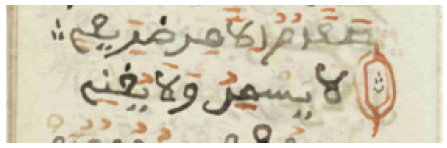 طعام الا من ضريع
لا يسمن ولا يغني